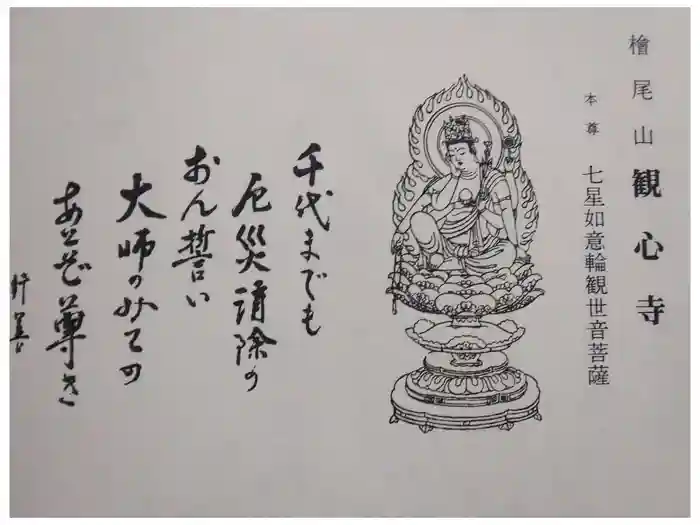 檜尾山 観心寺
本尊 七星如意輪観世音菩薩
千代までも
厄災消除の
おん誓い
大師のみての
あとぞ尊き